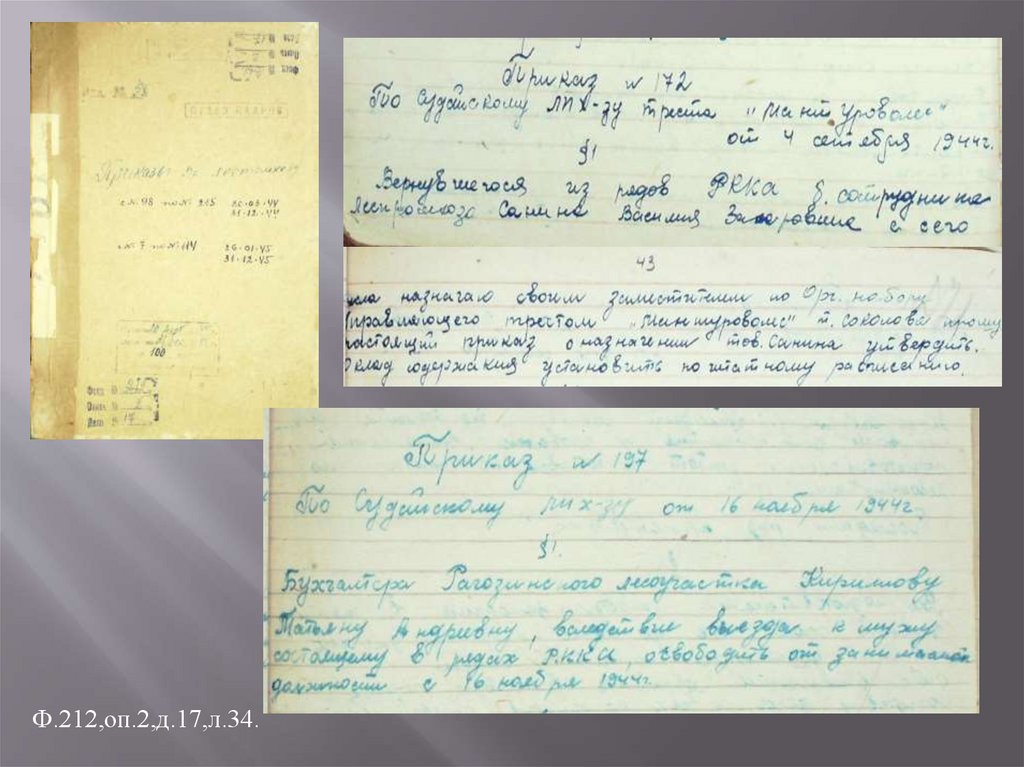 Приказы по
с № 48 по № 215 20-03-44
31-12-44
с № 7 по № 114 26-01-45
31-12-45
100
Фонд №
Опись №
Дело № 17
Приказ № 172
По Судайскому ЛПХ-зу треста „Мантуроволес"
от 4 сентября 1944г.
§1
Вернувшегося из рядов РККА б. сотрудника
леспромхоза Санина Василия Захаровича с сего
43
числа назначаю своим заместителем по Орг. набору
Управляющего трестом „Мантуроволес" т. Соколова прошу
настоящий приказ о назначении тов. Санина утвердить.
Оклад содержания установить по штатному расписанию.
Приказ № 197
По Судайскому ЛПХ-зу от 16 ноября 1944г.
§1.
Бухгалтера Рагозинского лесоучастка Кирилову
Татьяну Андривну, вследствие выезда к мужу
состоящему в рядах РККА, освободить от занимаемой
должности с 16 ноября 1944г.
Ф.212,оп.2,д.17,л.34.